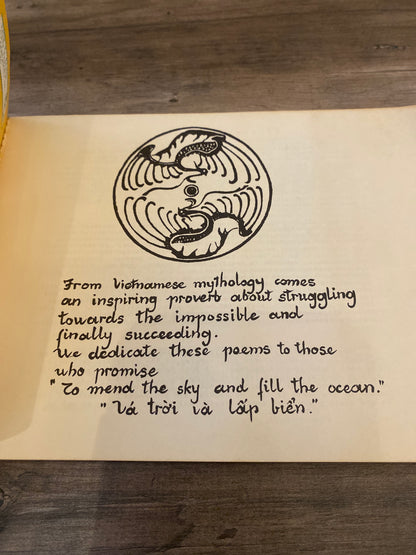 From Vietnamese mythology comes
an inspiring proverb about struggling
towards the impossible and
finally succeeding.
We dedicate these poems to those
who promise
"To mend the sky and fill the ocean."
"Vá trời và lấp biển."